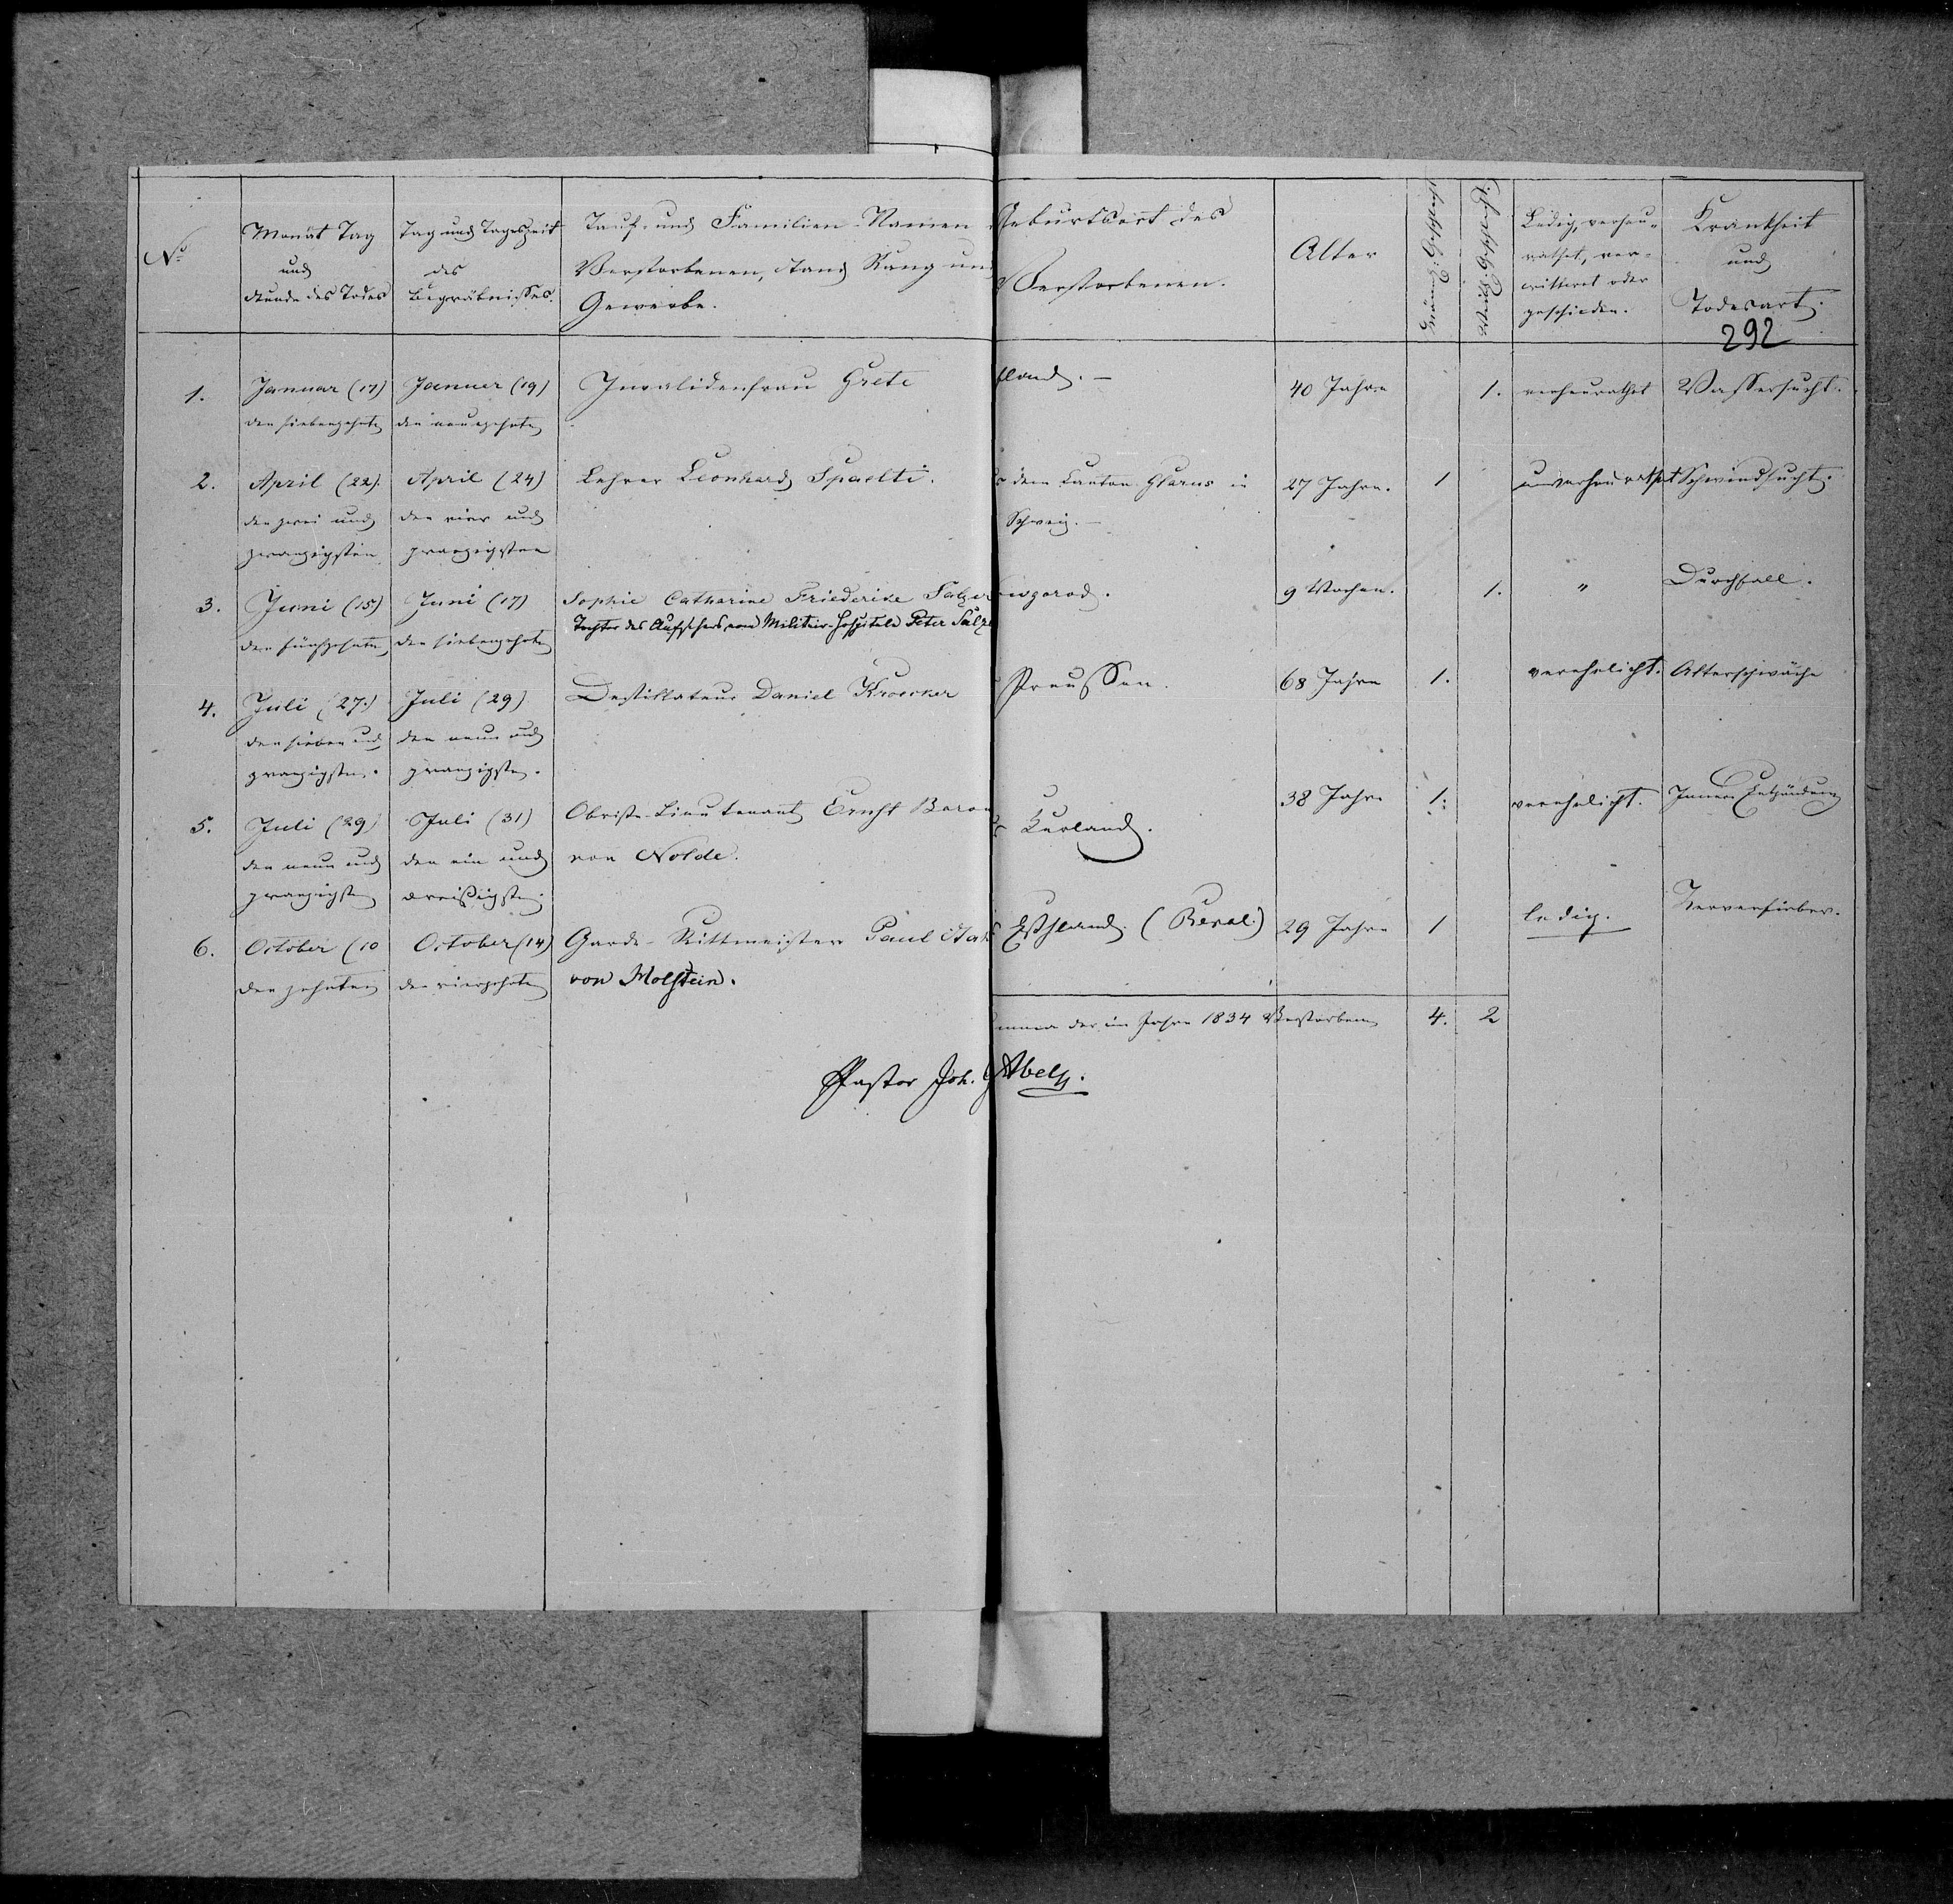 No.
Monat Tag
und
Stunde des Todes
Tag und Tageszeit
des
Begräbnisses.
Tauf- und Familien-Namen
Verstorbenen, Stand Rang und
Gewerbe.
Geburtsort des
Verstorbenen.
Alter
Männl: Geschlecht
Weibl: Geschlecht.
Ledig, verheu-
rathet, ver-
wittwet oder
geschieden.
Krankheit
und
Todesart.
292
1. Januar (17) Januer (19) Invalidenfrau Grete land. – 40 Jahre 1. verheurathet Wassersucht.
den siebenzehnten den neunzehnten
2. April (22). April (24) Lehrer Leonhard Spaelti. dem Canton Glarus in 27 Jahre. 1 unverheurathet Schwindsucht.
den zwei und den vier und Schweiz. –
zwanzigsten zwanzigsten
3. Juni (15) Juni (17) Sophie Catharine Friederike Salze wgorod. 9 Wochen. 1. " Durchfall.
den fünfzehnten den siebenzehnten Tochter des Aufsehers vom Militair-Hospitale Peter Salze
4. Juli (27.) Juli (29) Destillateur Daniel Kroecker Preussen. 68 Jahre 1. verehelicht. Alterschwäche
den sieben und den neun und
zwanzigsten. zwanzigsten.
5. Juli (29) Juli (31) Obrist-Lieutenant Ernst Baron Kurland. 38 Jahre 1. verehelicht. Innere Entzündung
den neun und den ein und von Nolde.
zwanzigsten dreißigsten.
6. October (10 October (14) Garde-Rittmeister Paul Esthland. (Reval.) 29 Jahre 1 ledig. Nervenfieber.
den zehnten den vierzehnten von
der im Jahre 1834 Verstorbenen 4. 2
Pastor Joh.